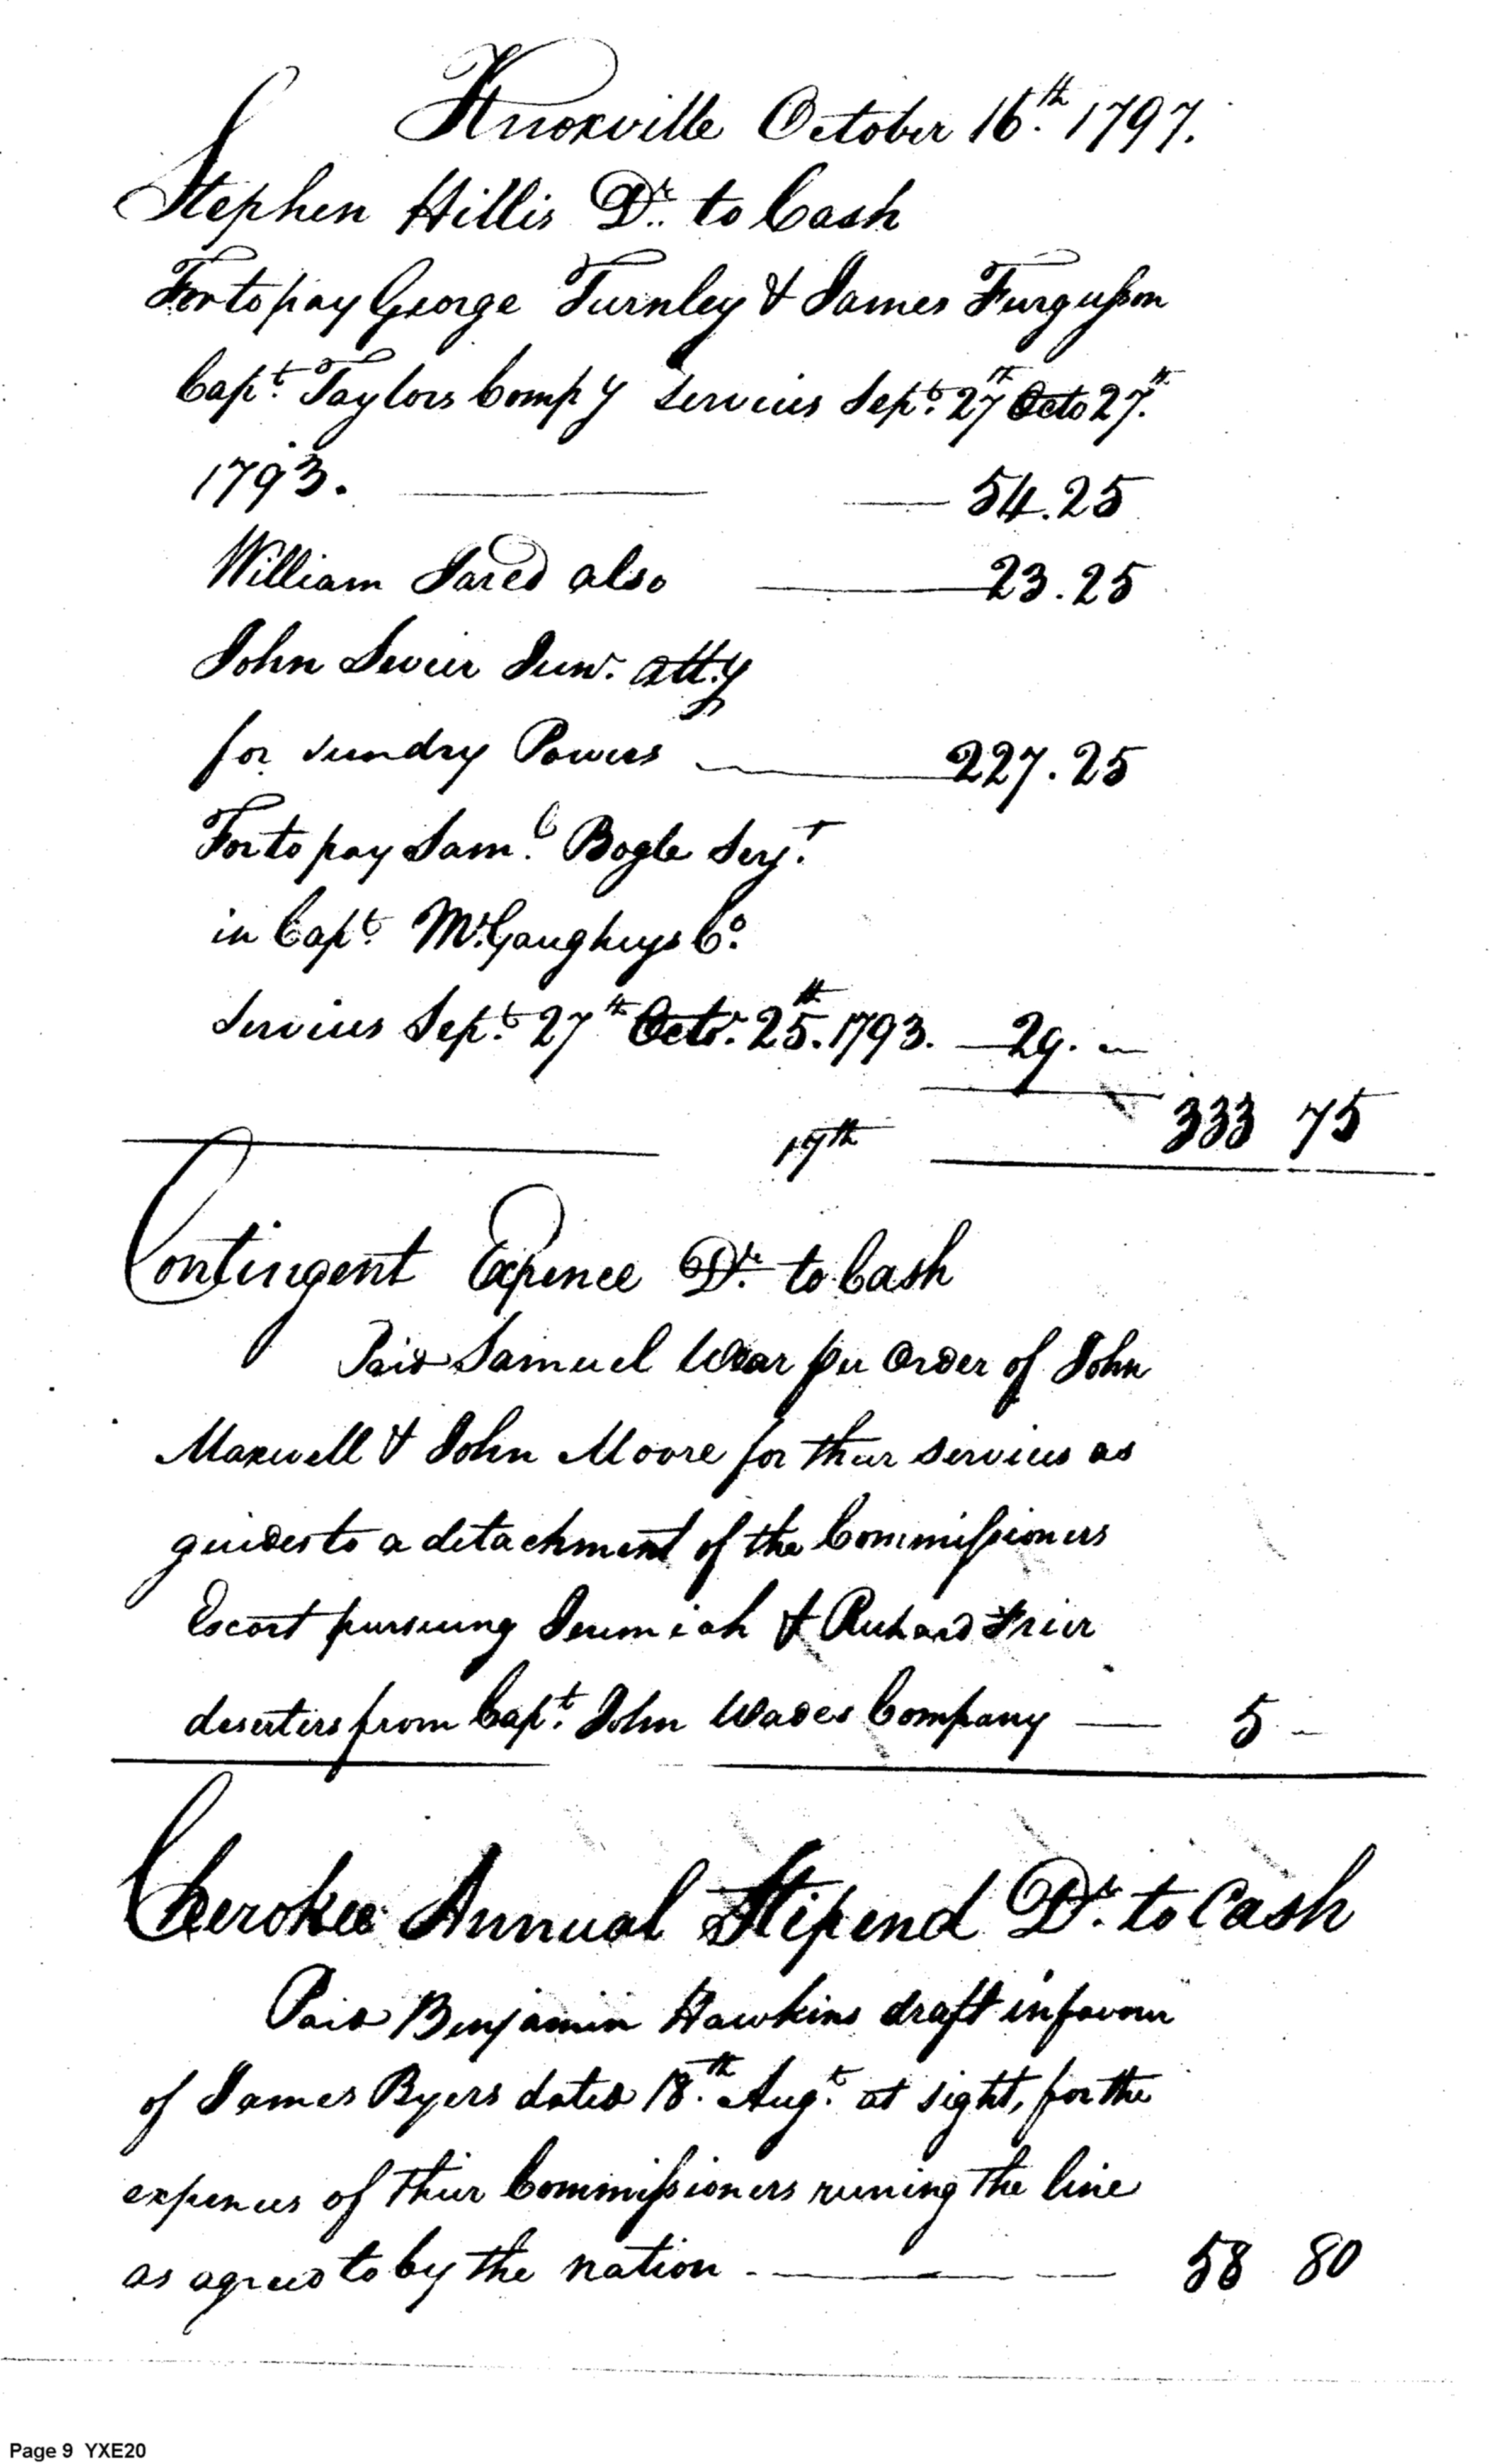 Knoxville October 16th. 1797.
Stephen Hillis Dr. to Cash
For to pay George Turnley & James Furguson
Capt. Taylors Compy services Sept. 27th Octo 27th.
1793. 54.25
William Jared also 23.25
John Sevier Junr. atty
for sundry Powers 227.25
For to pay Saml. Bogle Serjt.
in Capt. McGaugheys Co.
services Sept. 27th Octr. 25th. 1793. 29. -
333 75
17th
Contingent Expence Dr. to Cash
Paid Samuel Wear per order of John
Maxwell & John Moore for their services as
guides to a detachment of the Commissioners
Escort pursuing Jeremiah & Richard Frier
deserters from Capt. John Wades Company — 5 -
Cherokee Annual Stipend Dr. to Cash
Paid Benjamin Hawkins draft in favour
of James Byers dated 18th. Augt. at sight, for the
expences of their Commissioners runing the line
as agreed to by the nation - 58 80
Page 9 YXE20